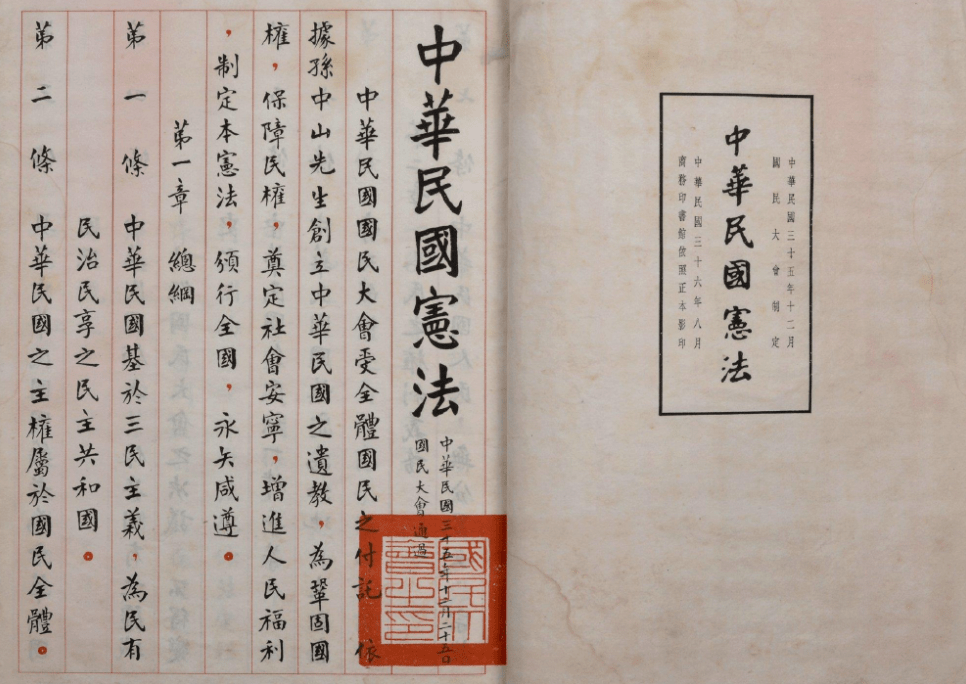 中華民國三十五年十二月
國民大會制定
中華民國憲法
中華民國三十六年八月
商務印書館依照正本影印
中華民國憲法
中華民國三十五年十二月二十五日
國民大會通過
中華民國國民大會受全體國民之付託 依
據孫中山先生創立中華民國之遺教，為鞏固國
權，保障民權，奠定社會安寧，增進人民福利
，制定本憲法，頒行全國，永矢咸遵。
第一章 總綱
第一條 中華民國基於三民主義，為民有
民治民享之民主共和國。
第二條 中華民國之主權屬於國民全體。
國民大會之印